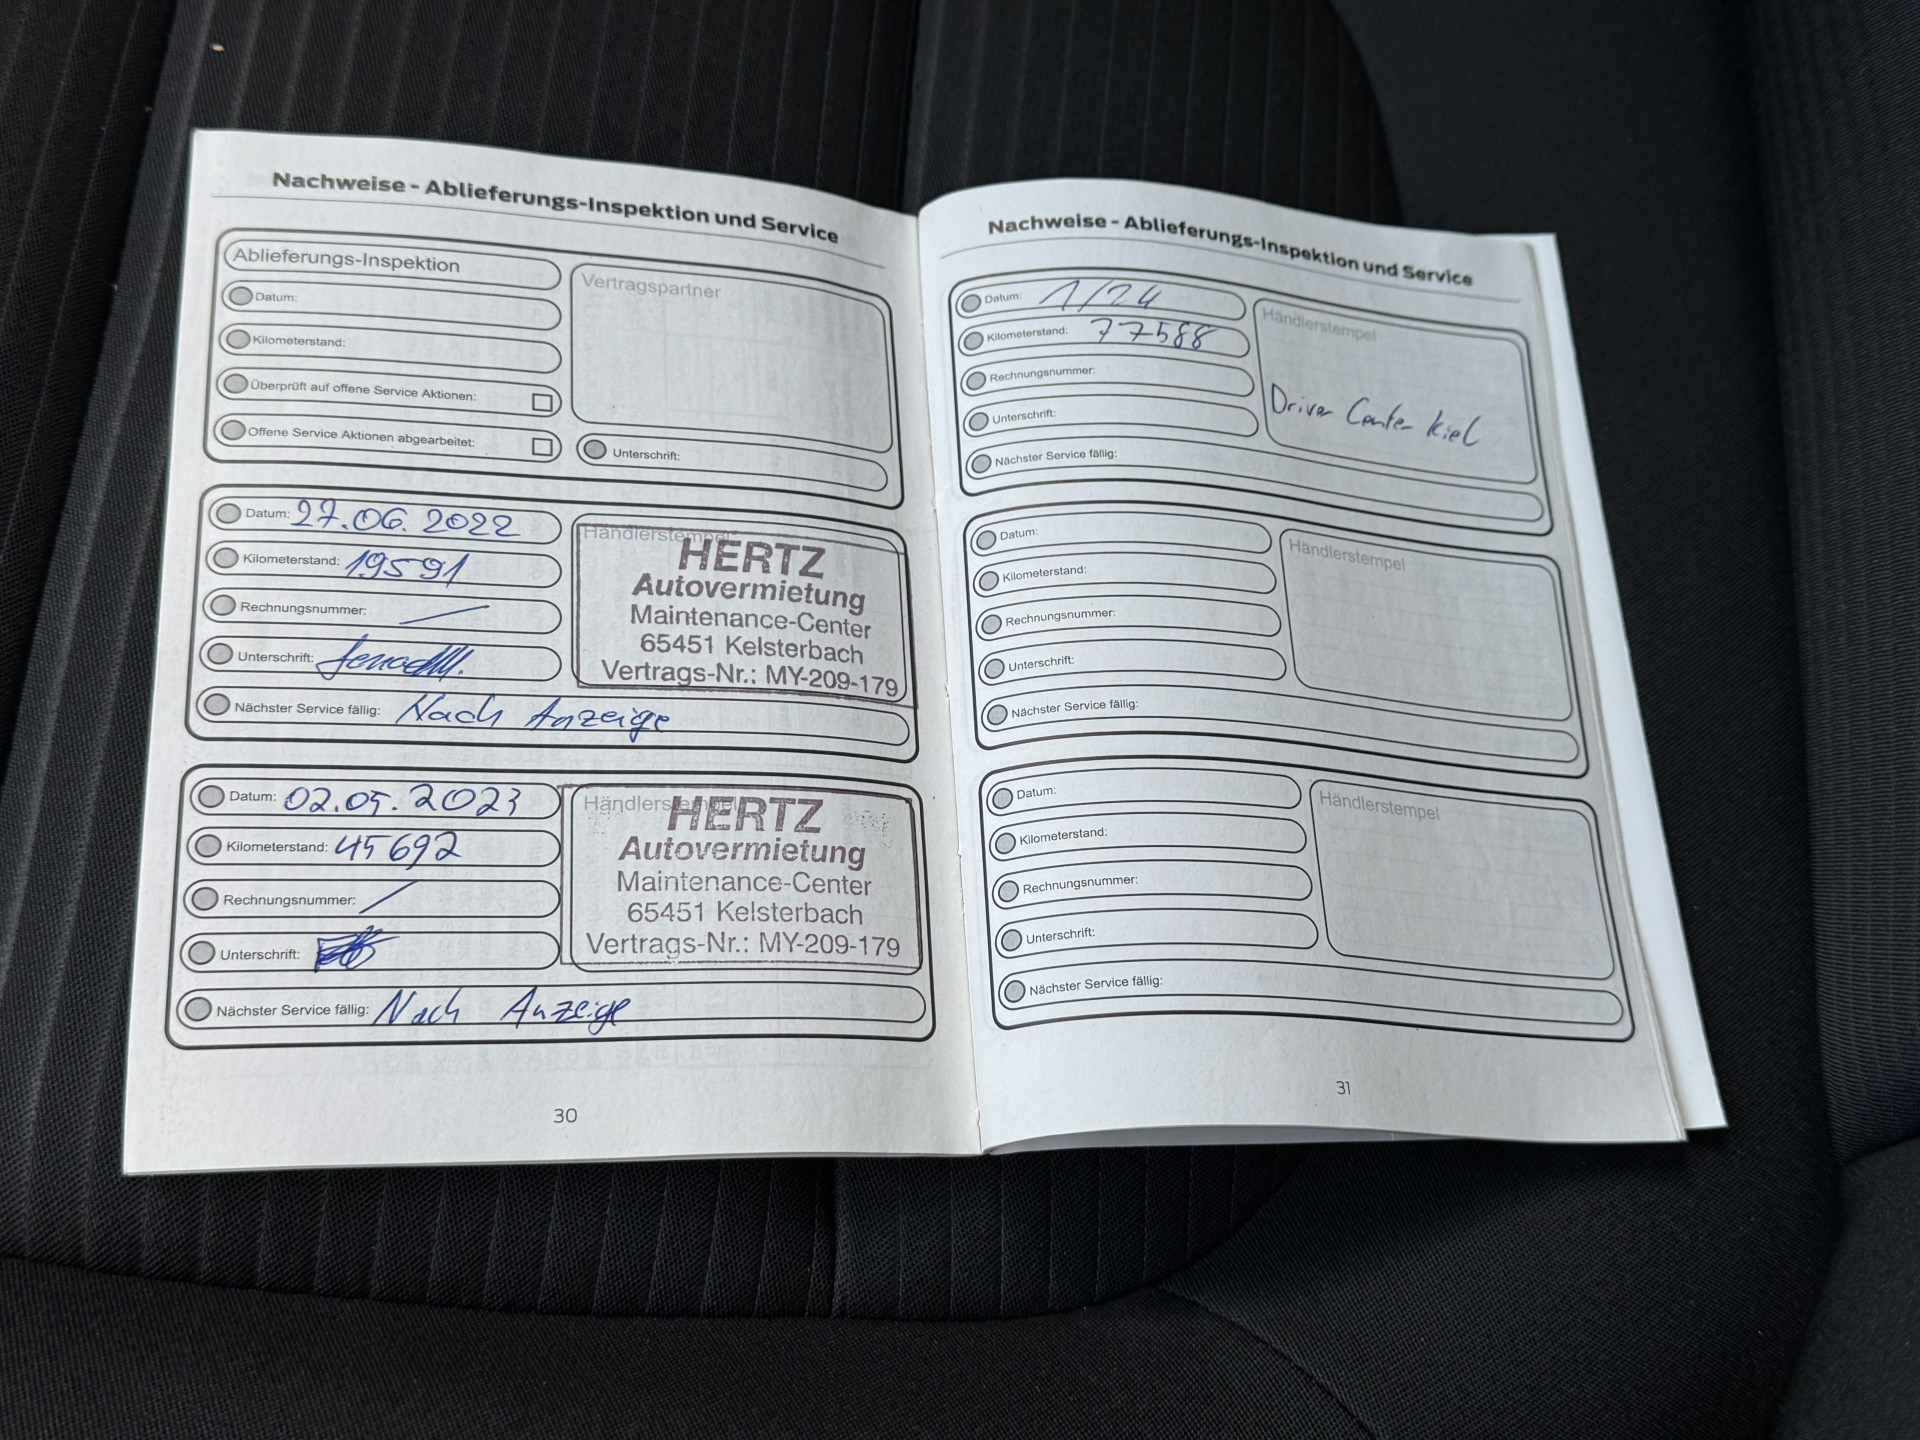 Nachweise - Ablieferungs-Inspektion und Service
Ablieferungs-Inspektion
Datum:
Kilometerstand:
Überprüft auf offene Service Aktionen:
Offene Service Aktionen abgearbeitet:
Vertragspartner
Unterschrift:
Datum: 27.06.2022
Kilometerstand: 19591
Rechnungsnummer:
Unterschrift:
Nächster Service fällig: Nach Anzeige
Händlerstempel
HERTZ
Autovermietung
Maintenance-Center
65451 Kelsterbach
Vertrags-Nr.: MY-209-179
Datum: 02.05.2023
Kilometerstand: 45692
Rechnungsnummer:
Unterschrift:
Nächster Service fällig: Nach Anzeige
Händlerstempel
HERTZ
Autovermietung
Maintenance-Center
65451 Kelsterbach
Vertrags-Nr.: MY-209-179
30
Nachweise - Ablieferungs-Inspektion und Service
Datum: 1/24
Kilometerstand: 77588
Rechnungsnummer:
Unterschrift:
Nächster Service fällig:
Händlerstempel
Driver Center Kiel
Datum:
Kilometerstand:
Rechnungsnummer:
Unterschrift:
Nächster Service fällig:
Händlerstempel
Datum:
Kilometerstand:
Rechnungsnummer:
Unterschrift:
Nächster Service fällig:
Händlerstempel
31